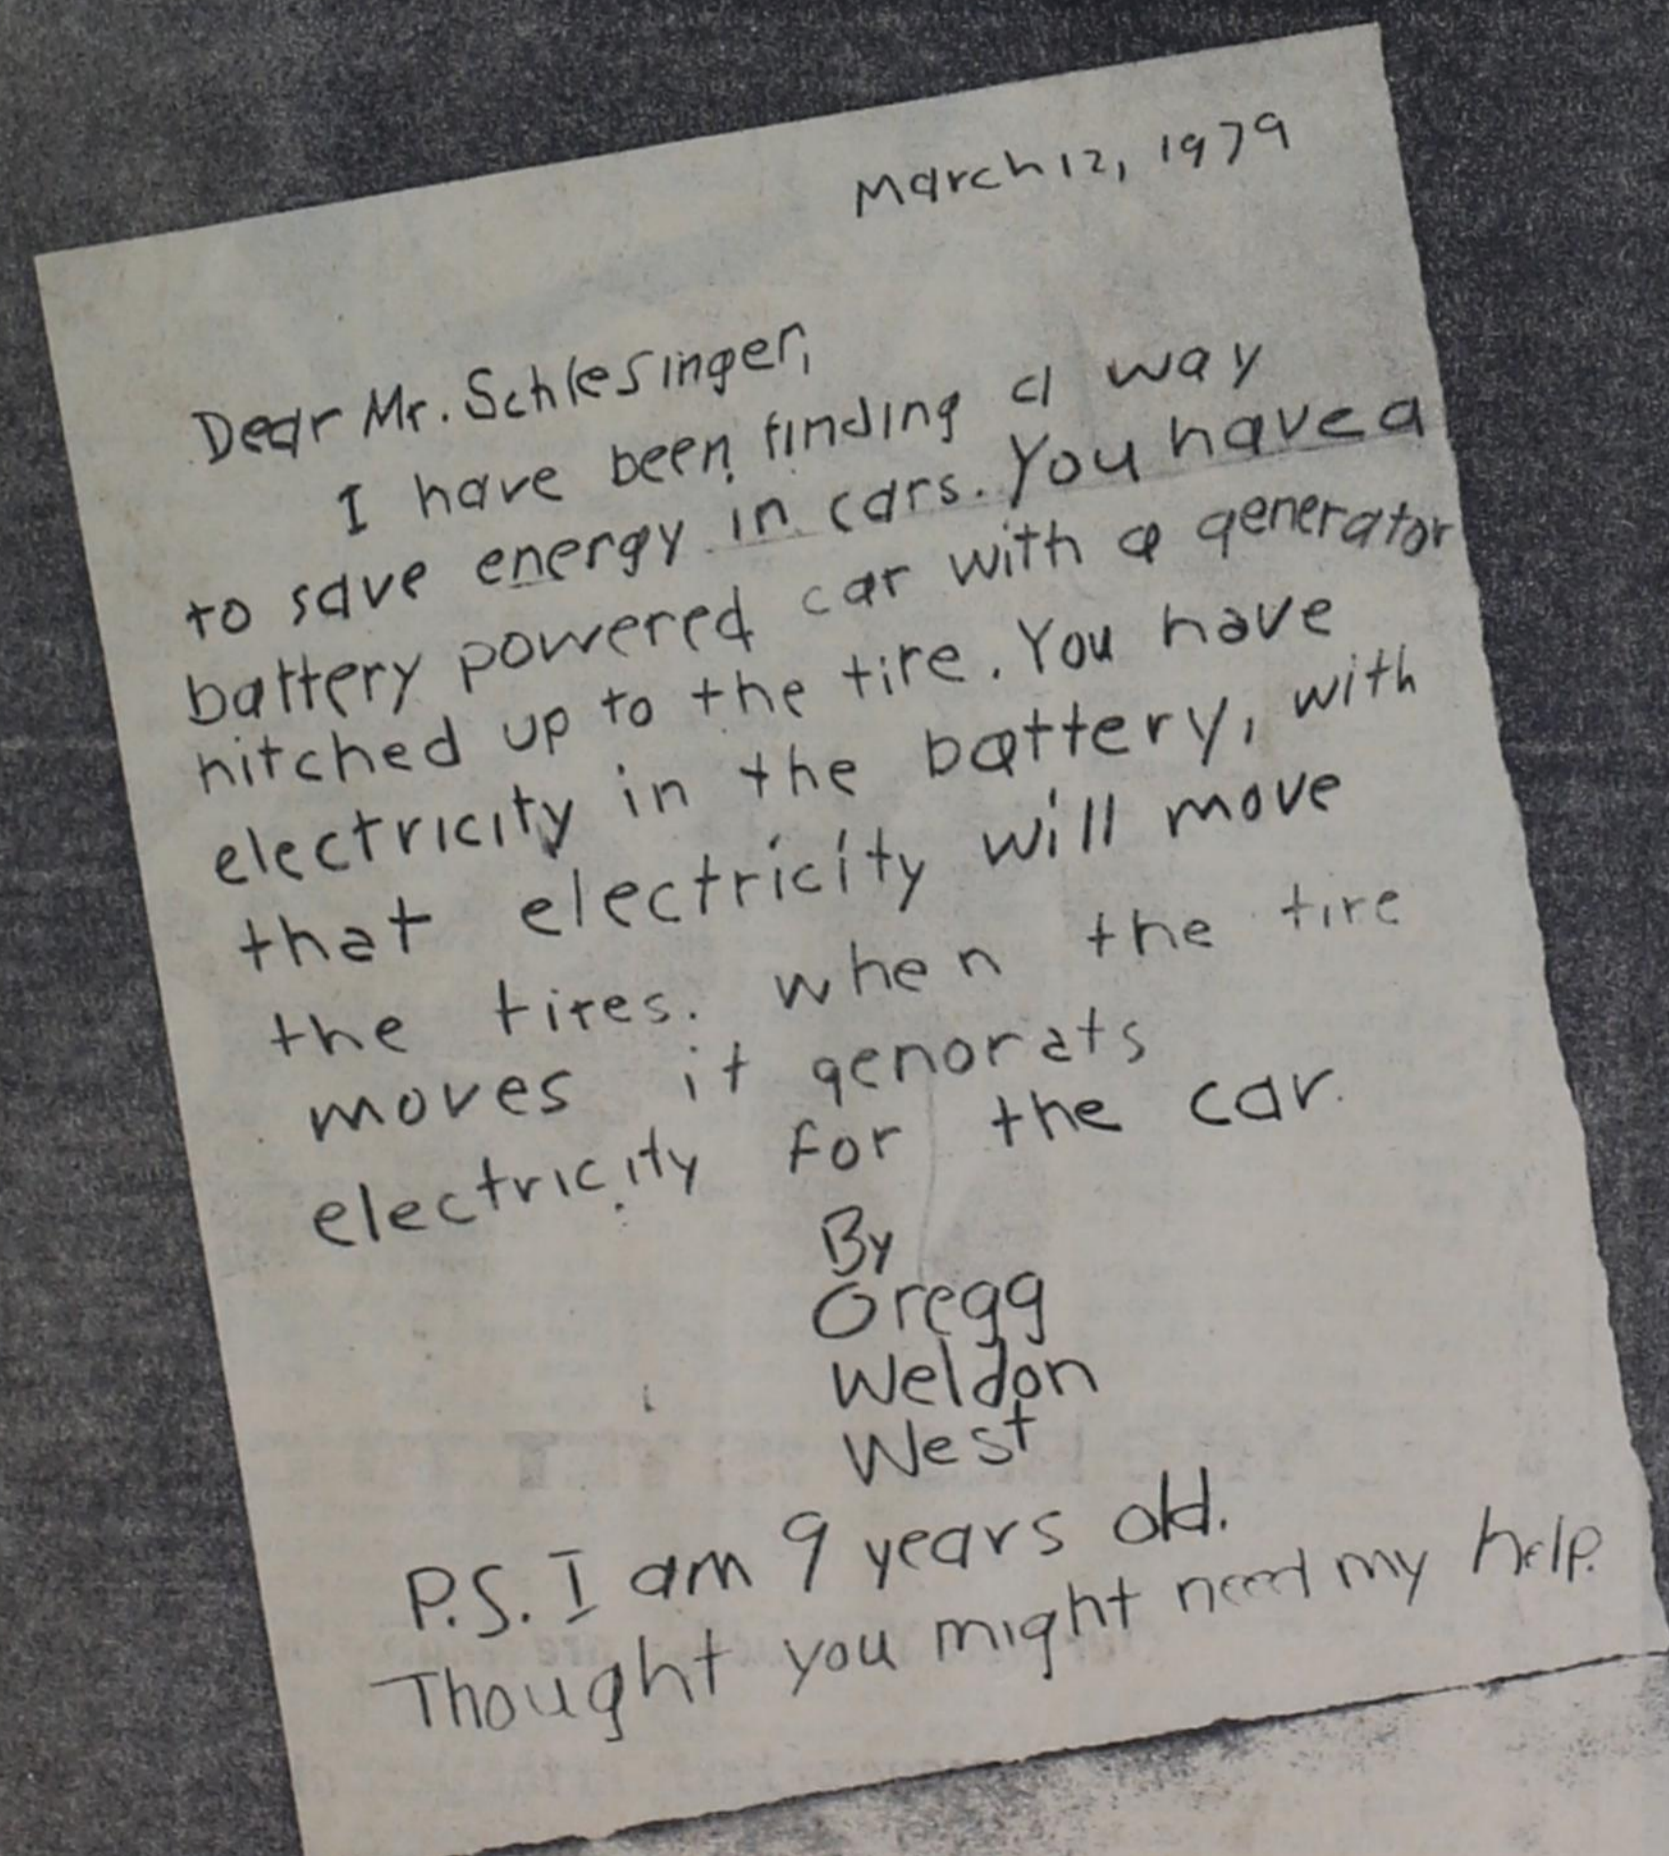 March 12, 1979
Dear Mr. Schlesinger,
I have been finding a way
to save energy in cars. You have a
battery powered car with a generator
hitched up to the tire. You have
electricity in the battery, with
that electricity will move
the tires. when the tire
moves it genorats
electricity for the car.
By
Gregg
Weldon
West
P.S. I am 9 years old.
Thought you might need my help.